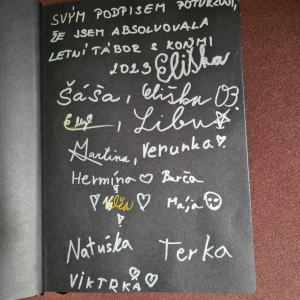 SVÝM PODPISEM POTVRZUJI,
ŽE JSEM ABSOLVOVALA
LETNÍ TÁBOR S KOŇMI
2023 Eliška
Šáša, Eliška
Libu
Martina, Verunka
Hermína Barča
Maja
Natuška Terka
VIKTRKA